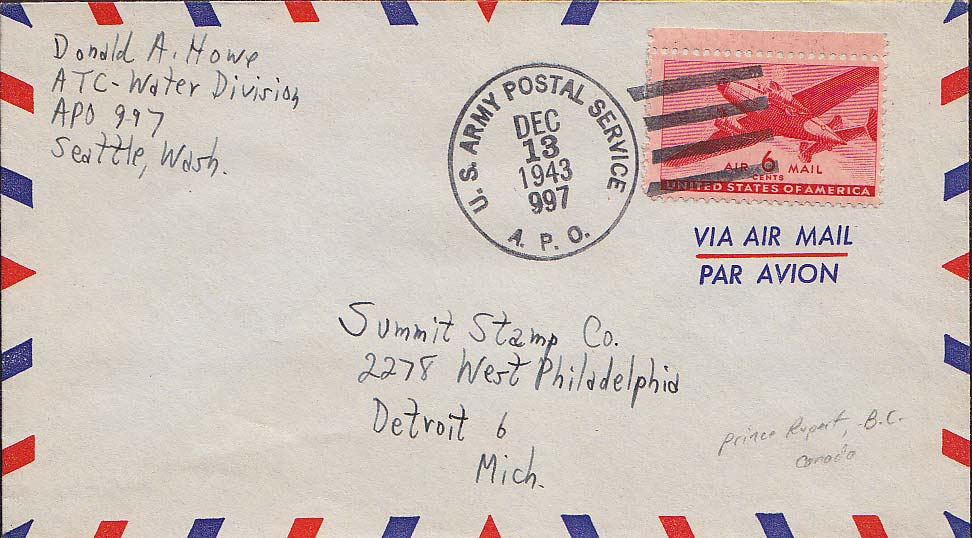 Donald A. Howe
ATC-Water Division
APO 997
Seattle, Wash.
U. S. ARMY POSTAL SERVICE
DEC
13
1943
997
A. P. O.
AIR 6 MAIL
CENTS
UNITED STATES OF AMERICA
VIA AIR MAIL
PAR AVION
Summit Stamp Co.
2278 West Philadelphia
Detroit 6
Mich.
Prince Rupert, B.C.
Canada